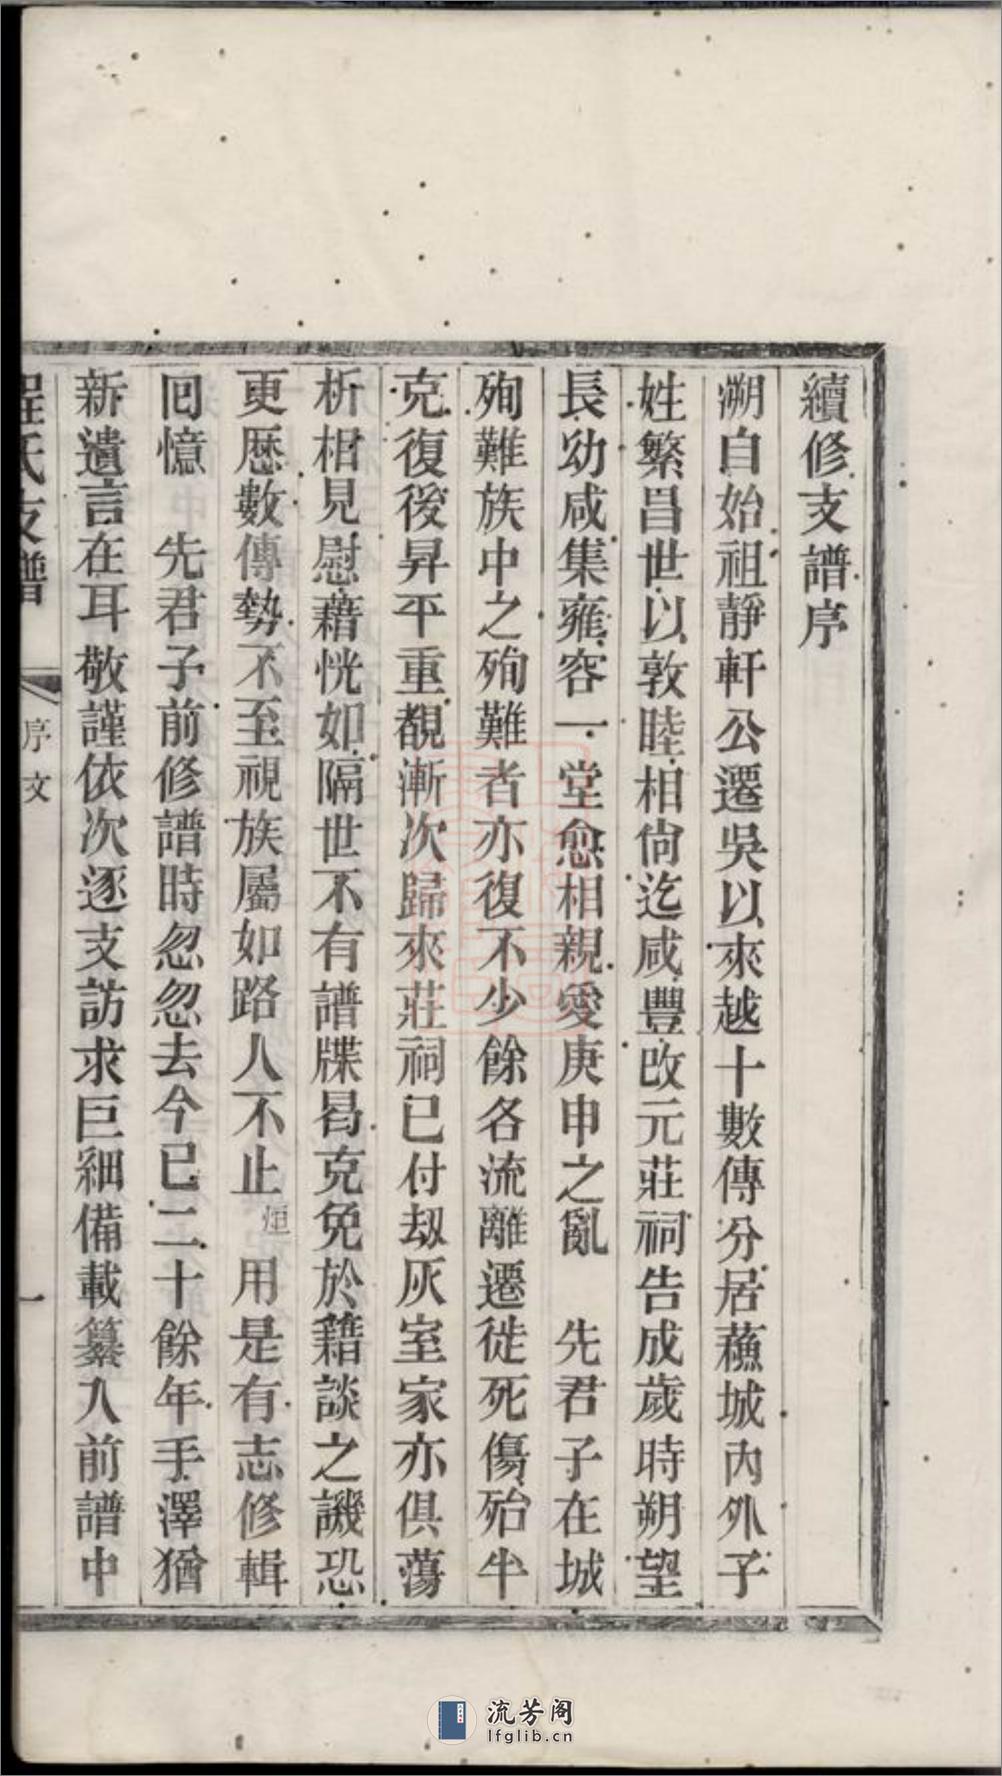 續修支譜序
溯自始祖靜軒公遷吳以來越十數傳分居蘓城內外子
姓繁昌世以敦睦相尙迄咸豐改元莊祠告成歲時朔望
長幼咸集雍容一堂愈相親愛庚申之亂　先君子在城
殉難族中之殉難者亦復不少餘各流離遷徙死傷殆半
克復後昇平重覩漸次歸來莊祠已付刼灰室家亦俱蕩
析相見慰藉恍如隔世不有譜牒曷克免於籍談之譏恐
更歷數傳勢不至視族屬如路人不止烜用是有志修輯
回憶　先君子前修譜時忽忽去今已二十餘年手澤猶
新遺言在耳敬謹依次逐支訪求巨細備載纂入前譜中
程氏支譜　序文　一
流芳阁
lfglib.cn